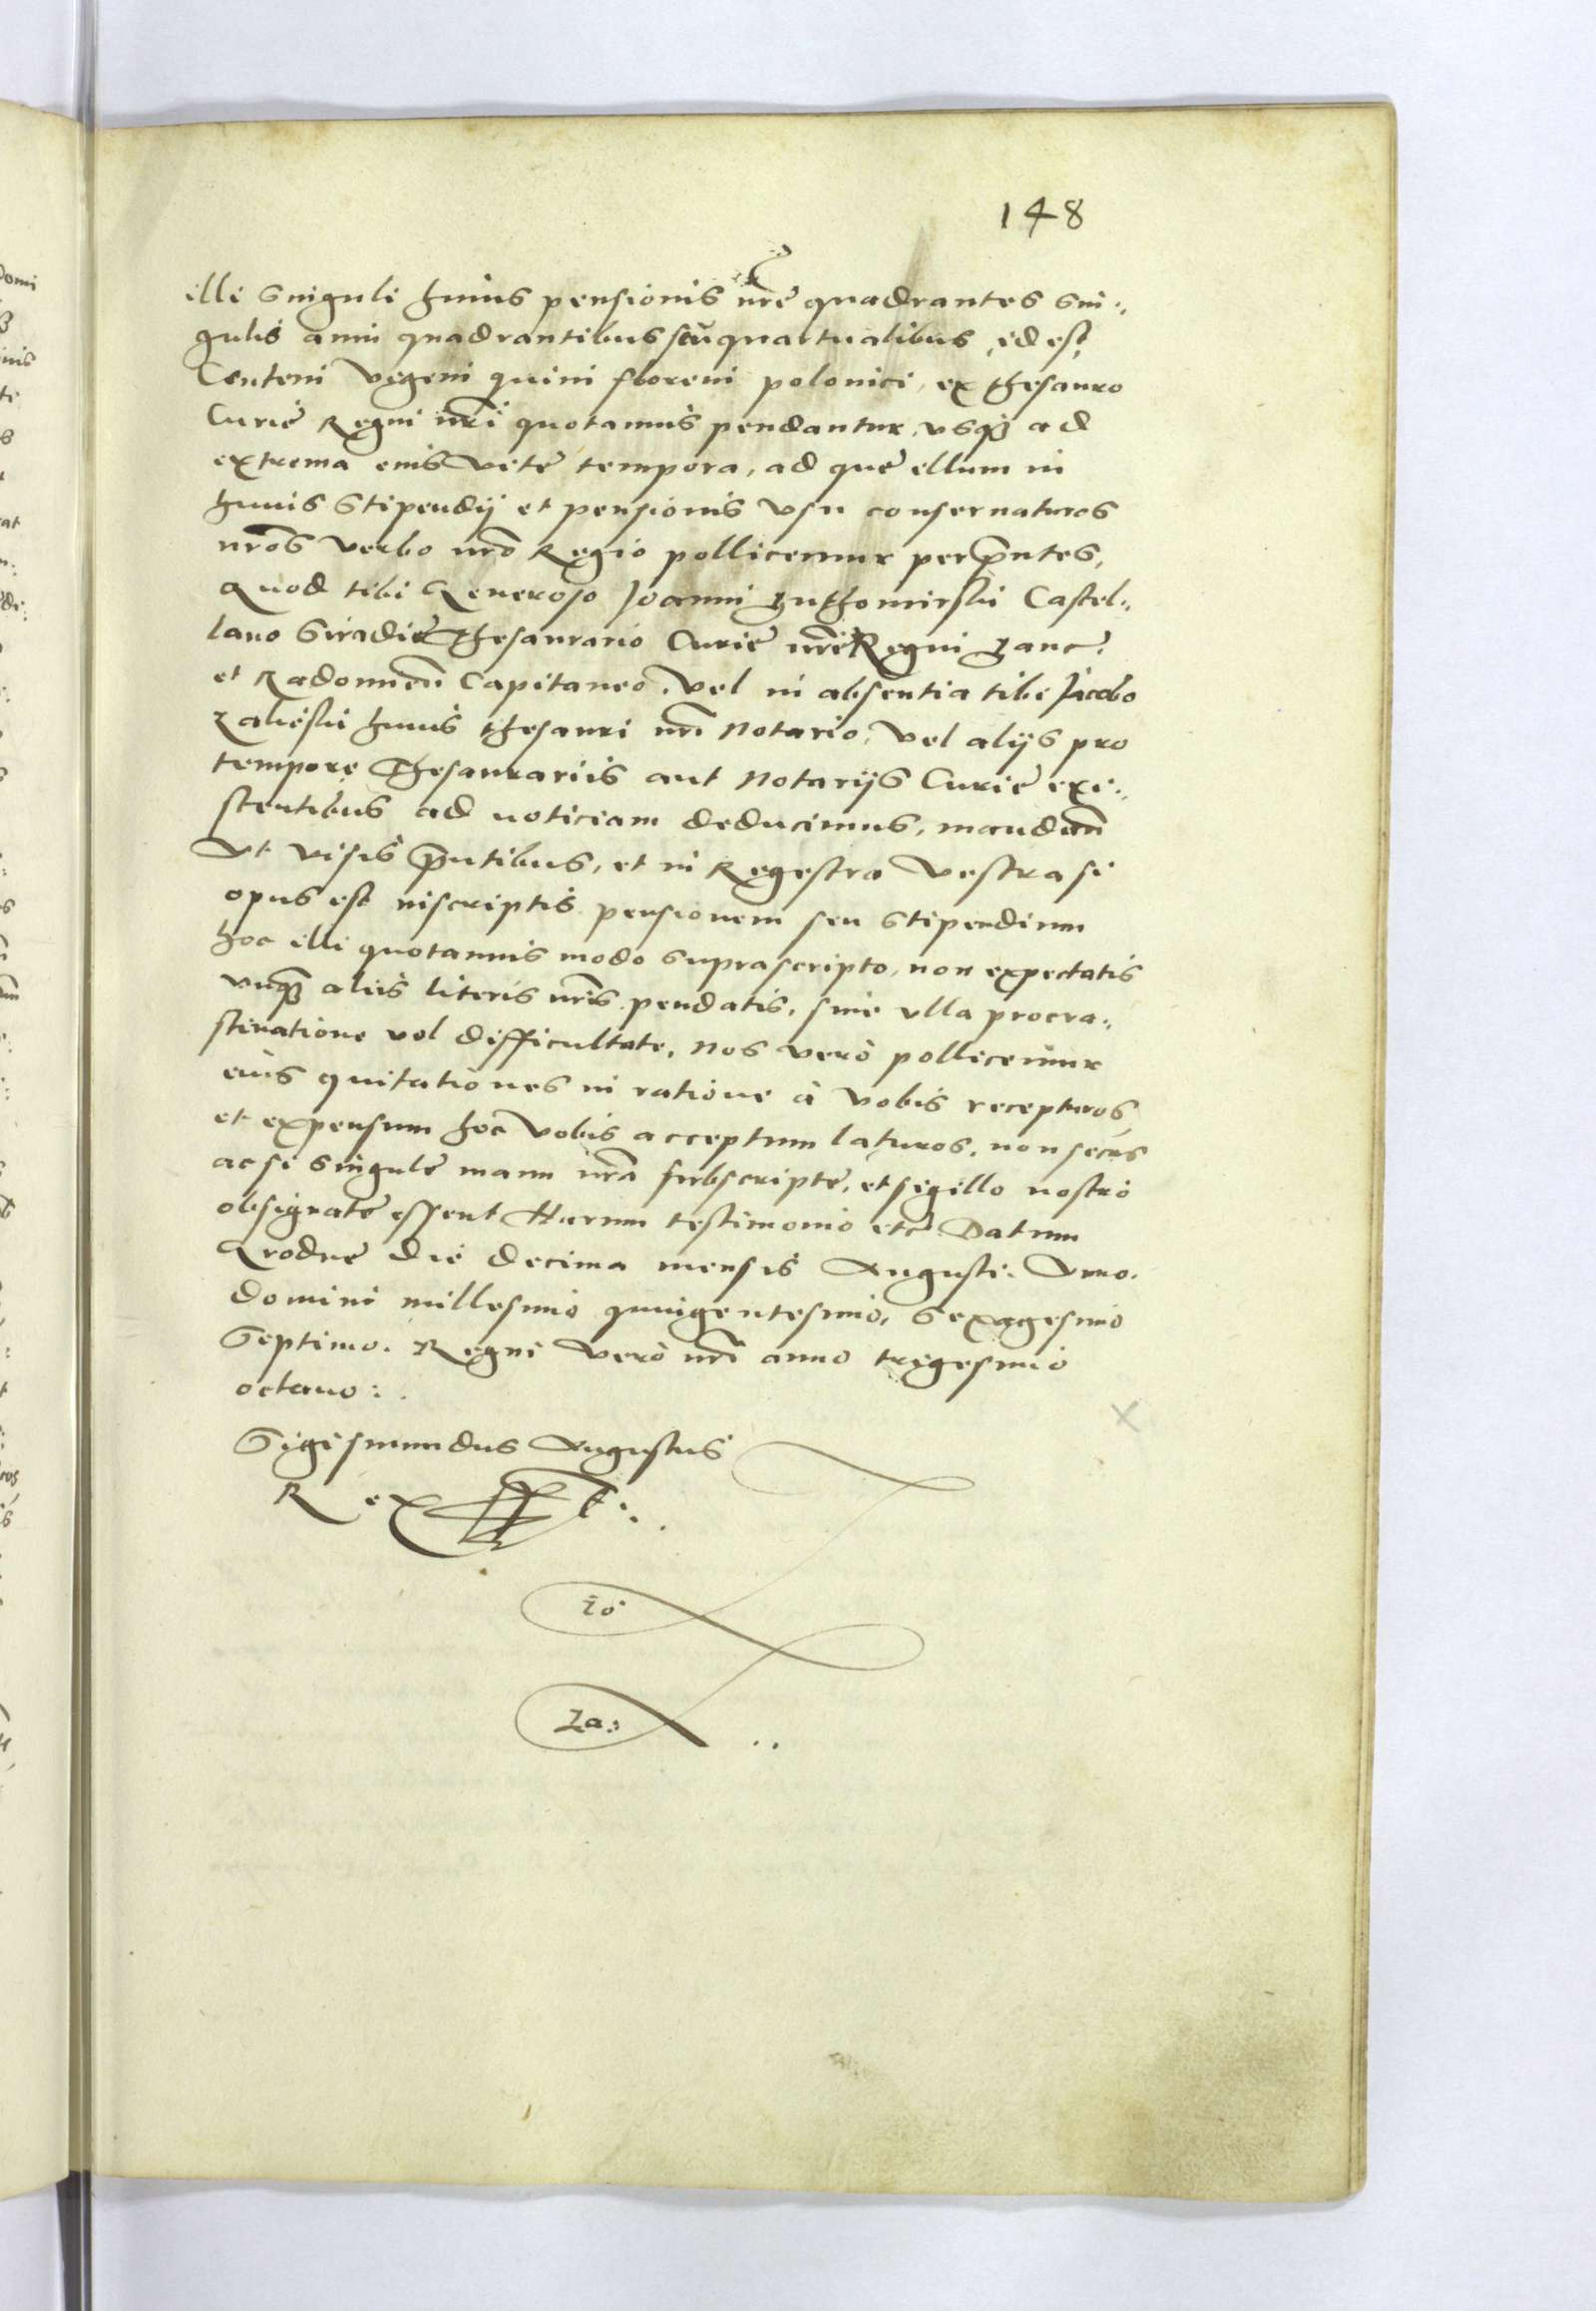 148
illi singuli huius pensionis nrē quadrantes sin„
gulis anni quadrantibus seu quartualibus, id est,
Centeni vigeni quini floreni polonici, ex thesauro
Curię Regni nr̃i quotannis pendantur, vsqȝ ad
extrema eius vitę tempora, ad quę illum in
huius stipendij et pensionis vsu conseruaturos
nr̃os verbo nr̃o Regio pollicemur per p̃ntes,
Quod tibi Generoso Joanni Luthomirski Castel„
lano Siradię Thesaurario Curię nr̃ę Regni Lanc:
et Radomień Capitaneo, vel in absentia tibi Jacobo
Zalieski huius thesauri nr̃i Notario, vel alijs pro
tempore Thesaurariis aut Notarijs Curię exi„
stentibus ad noticiam deducimus, mandań
Vt visis p̃ntibus, et in Regestra vestra si
opus est inscriptis pensionem seu stipendium
hoc illi quotannis modo suprascripto, non expectatis
vnqȝ aliis literis nr̃is pendatis, sine vlla procra„
stinatione vel difficultate, Nos verò pollicemur
eius quitationes in ratione à vobis recepturos
et expensum hoc vobis acceptum laturos, non secus
ac si singulę manu nr̃a subscriptę, et sigillo nostro
obsignatę essent Harum testimonio etc Datum
Grodnę die decima mensis Augusti. Anno.
domini millesimo quingentesimo, sexagesimo
Septimo. Regni verò nr̃i anno trigesimo
octauo:.
Sigismundus Augustus
Rex
Io
Za: